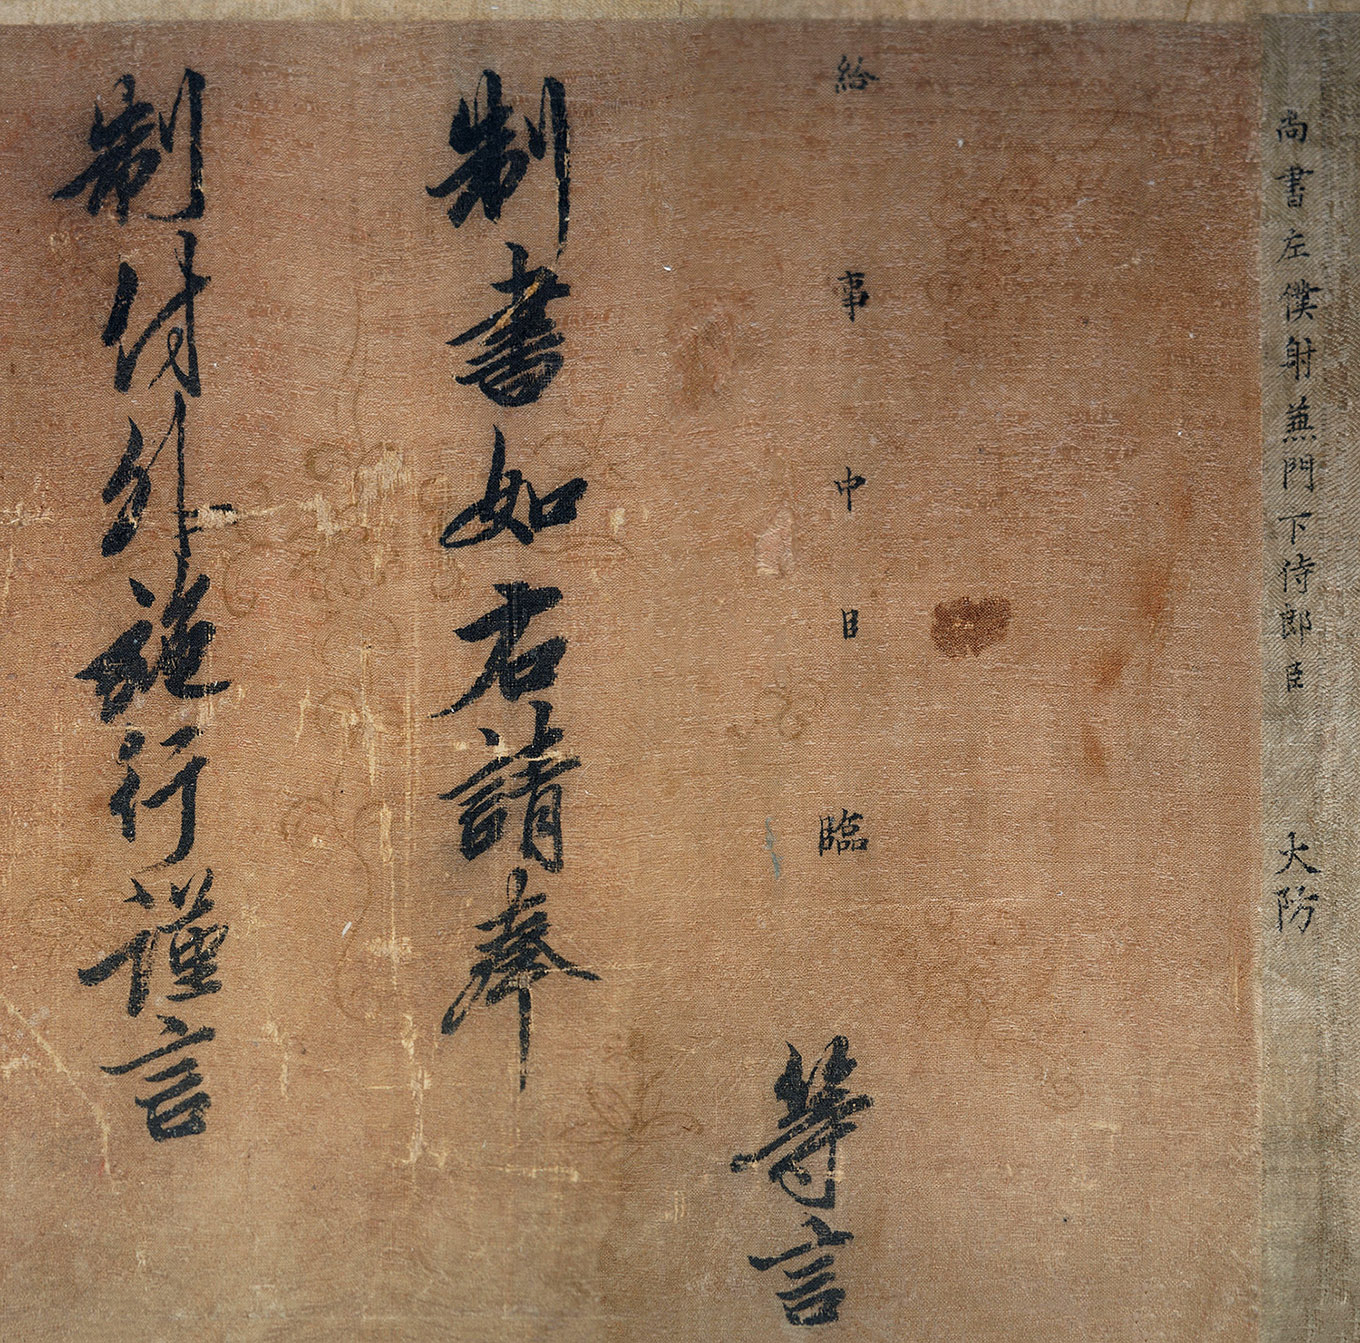 尚書左僕射蕭門下侍郎臣 大防
給事中臣臨
等言
制書如右請奉
制付外施行謹言